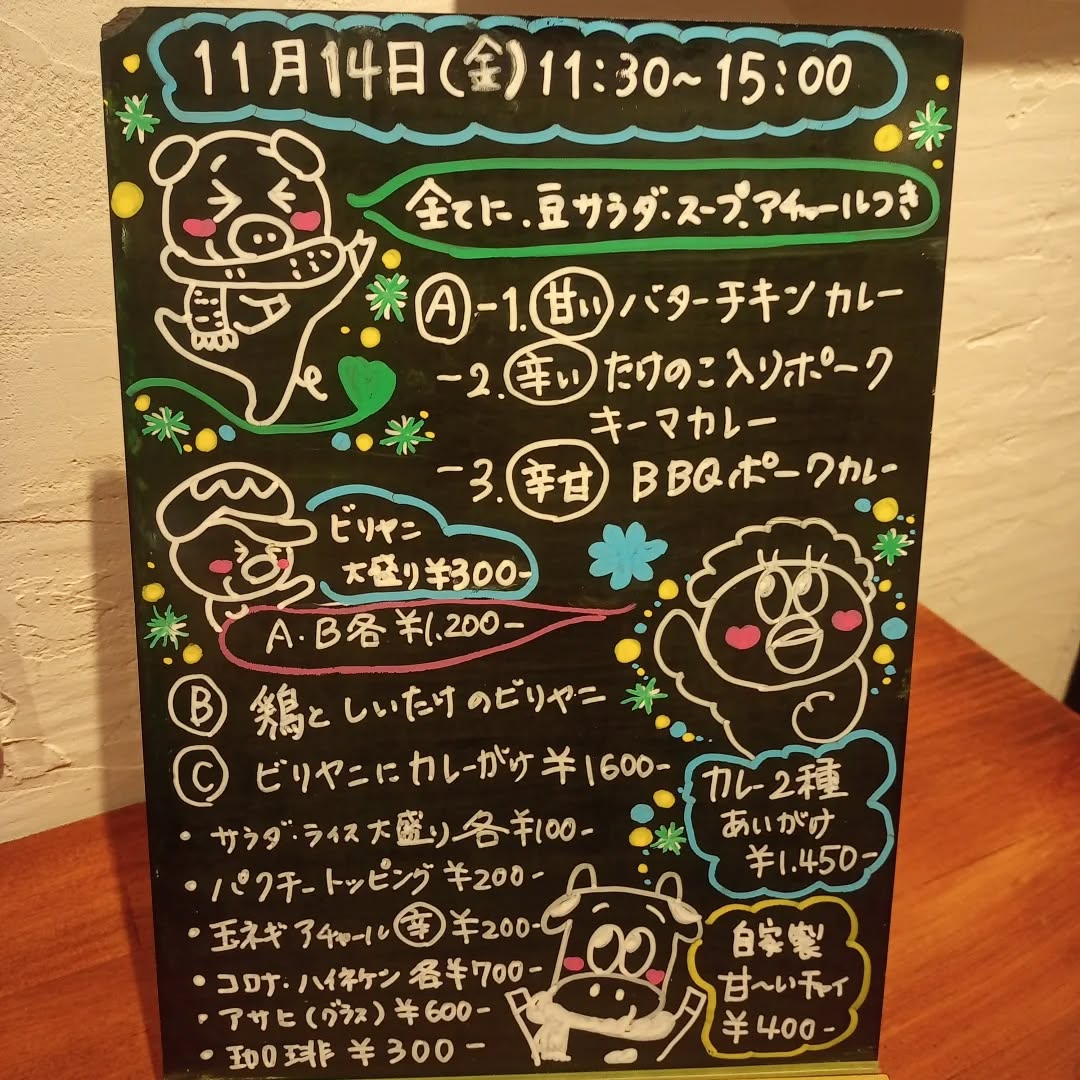 11月14日(金)11:30~15:00
全てに、豆サラダ・スープ、アチャールつき
Ⓐ-1. 甘い バターチキンカレー
-2. 辛い たけのこ入りポーク
キーマカレー
-3. 辛甘 BBQポークカレー
ビリヤニ
大盛り¥300-
A・B各¥1,200-
Ⓑ 鶏としいたけのビリヤニ
Ⓒ ビリヤニにカレーがけ¥1600-
カレー2種
あいがけ
¥1.450-
・サラダ・ライス大盛り各¥100-
・パクチートッピング¥200-
・玉ネギアチャール辛¥200-
・コロナ・ハイネケン各¥700-
・アサヒ(グラス)¥600-
・珈琲¥300-
自家製
甘~いチャイ
¥400-